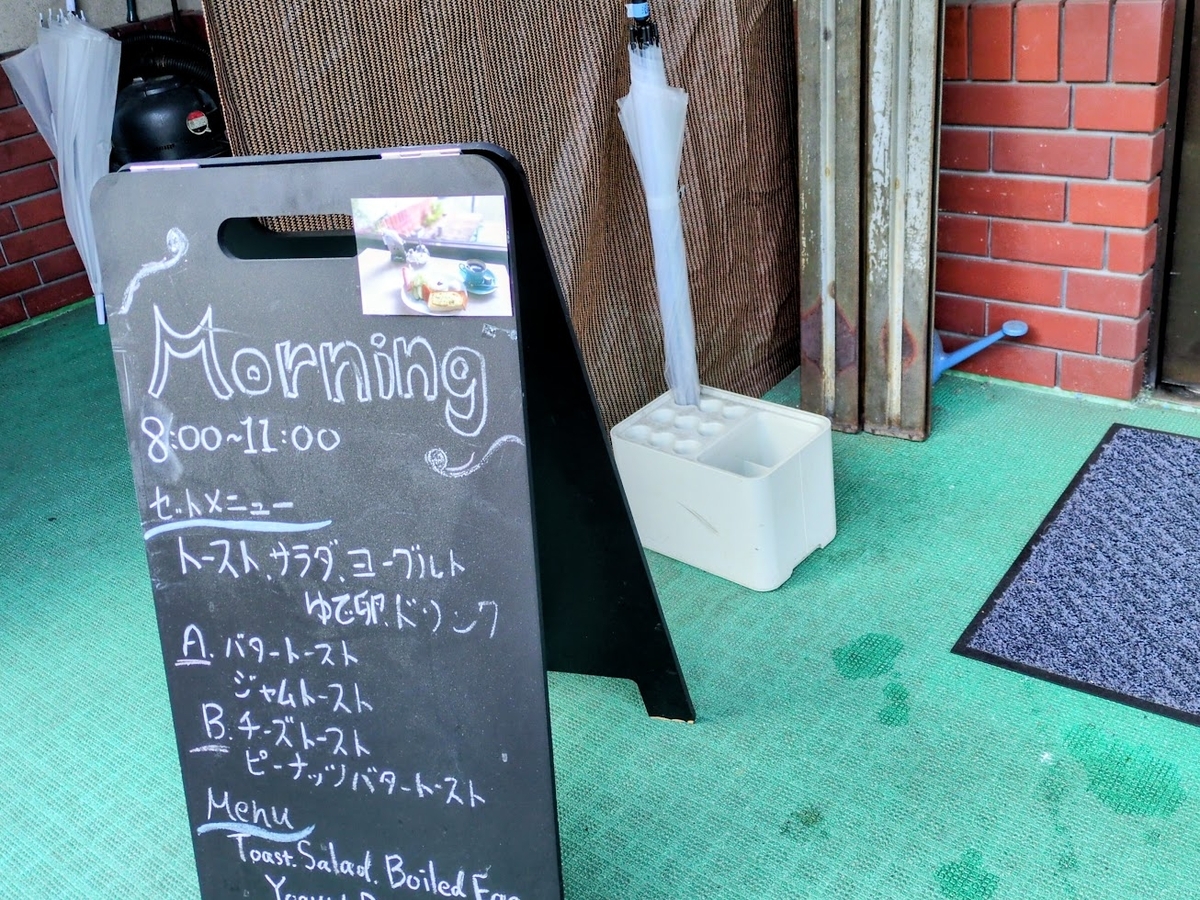 Morning
8:00~11:00
セットメニュー
トースト、サラダ、ヨーグルト
ゆで卵、ドリンク
A. バタートースト
ジャムトースト
B. チーズトースト
ピーナッツバタートースト
Menu
Toast. Salad. Boiled Egg